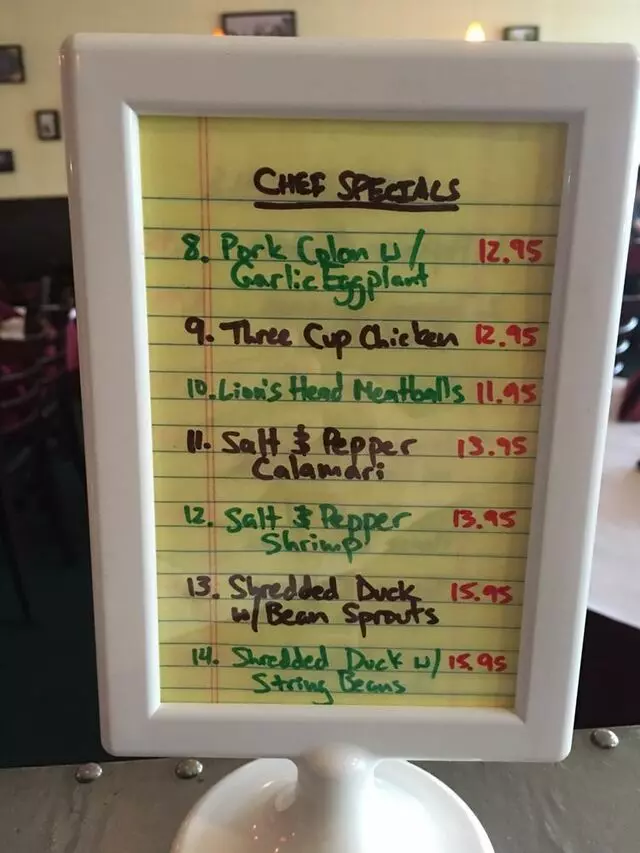 CHEF SPECIALS
8. Pork Colon w/ 12.95
Garlic Eggplant
9. Three Cup Chicken 12.95
10. Lion's Head Meatballs 11.95
11. Salt & Pepper 13.95
Calamari
12. Salt & Pepper 13.95
Shrimp
13. Shredded Duck 15.95
w/ Bean Sprouts
14. Shredded Duck w/ 15.95
String Beans